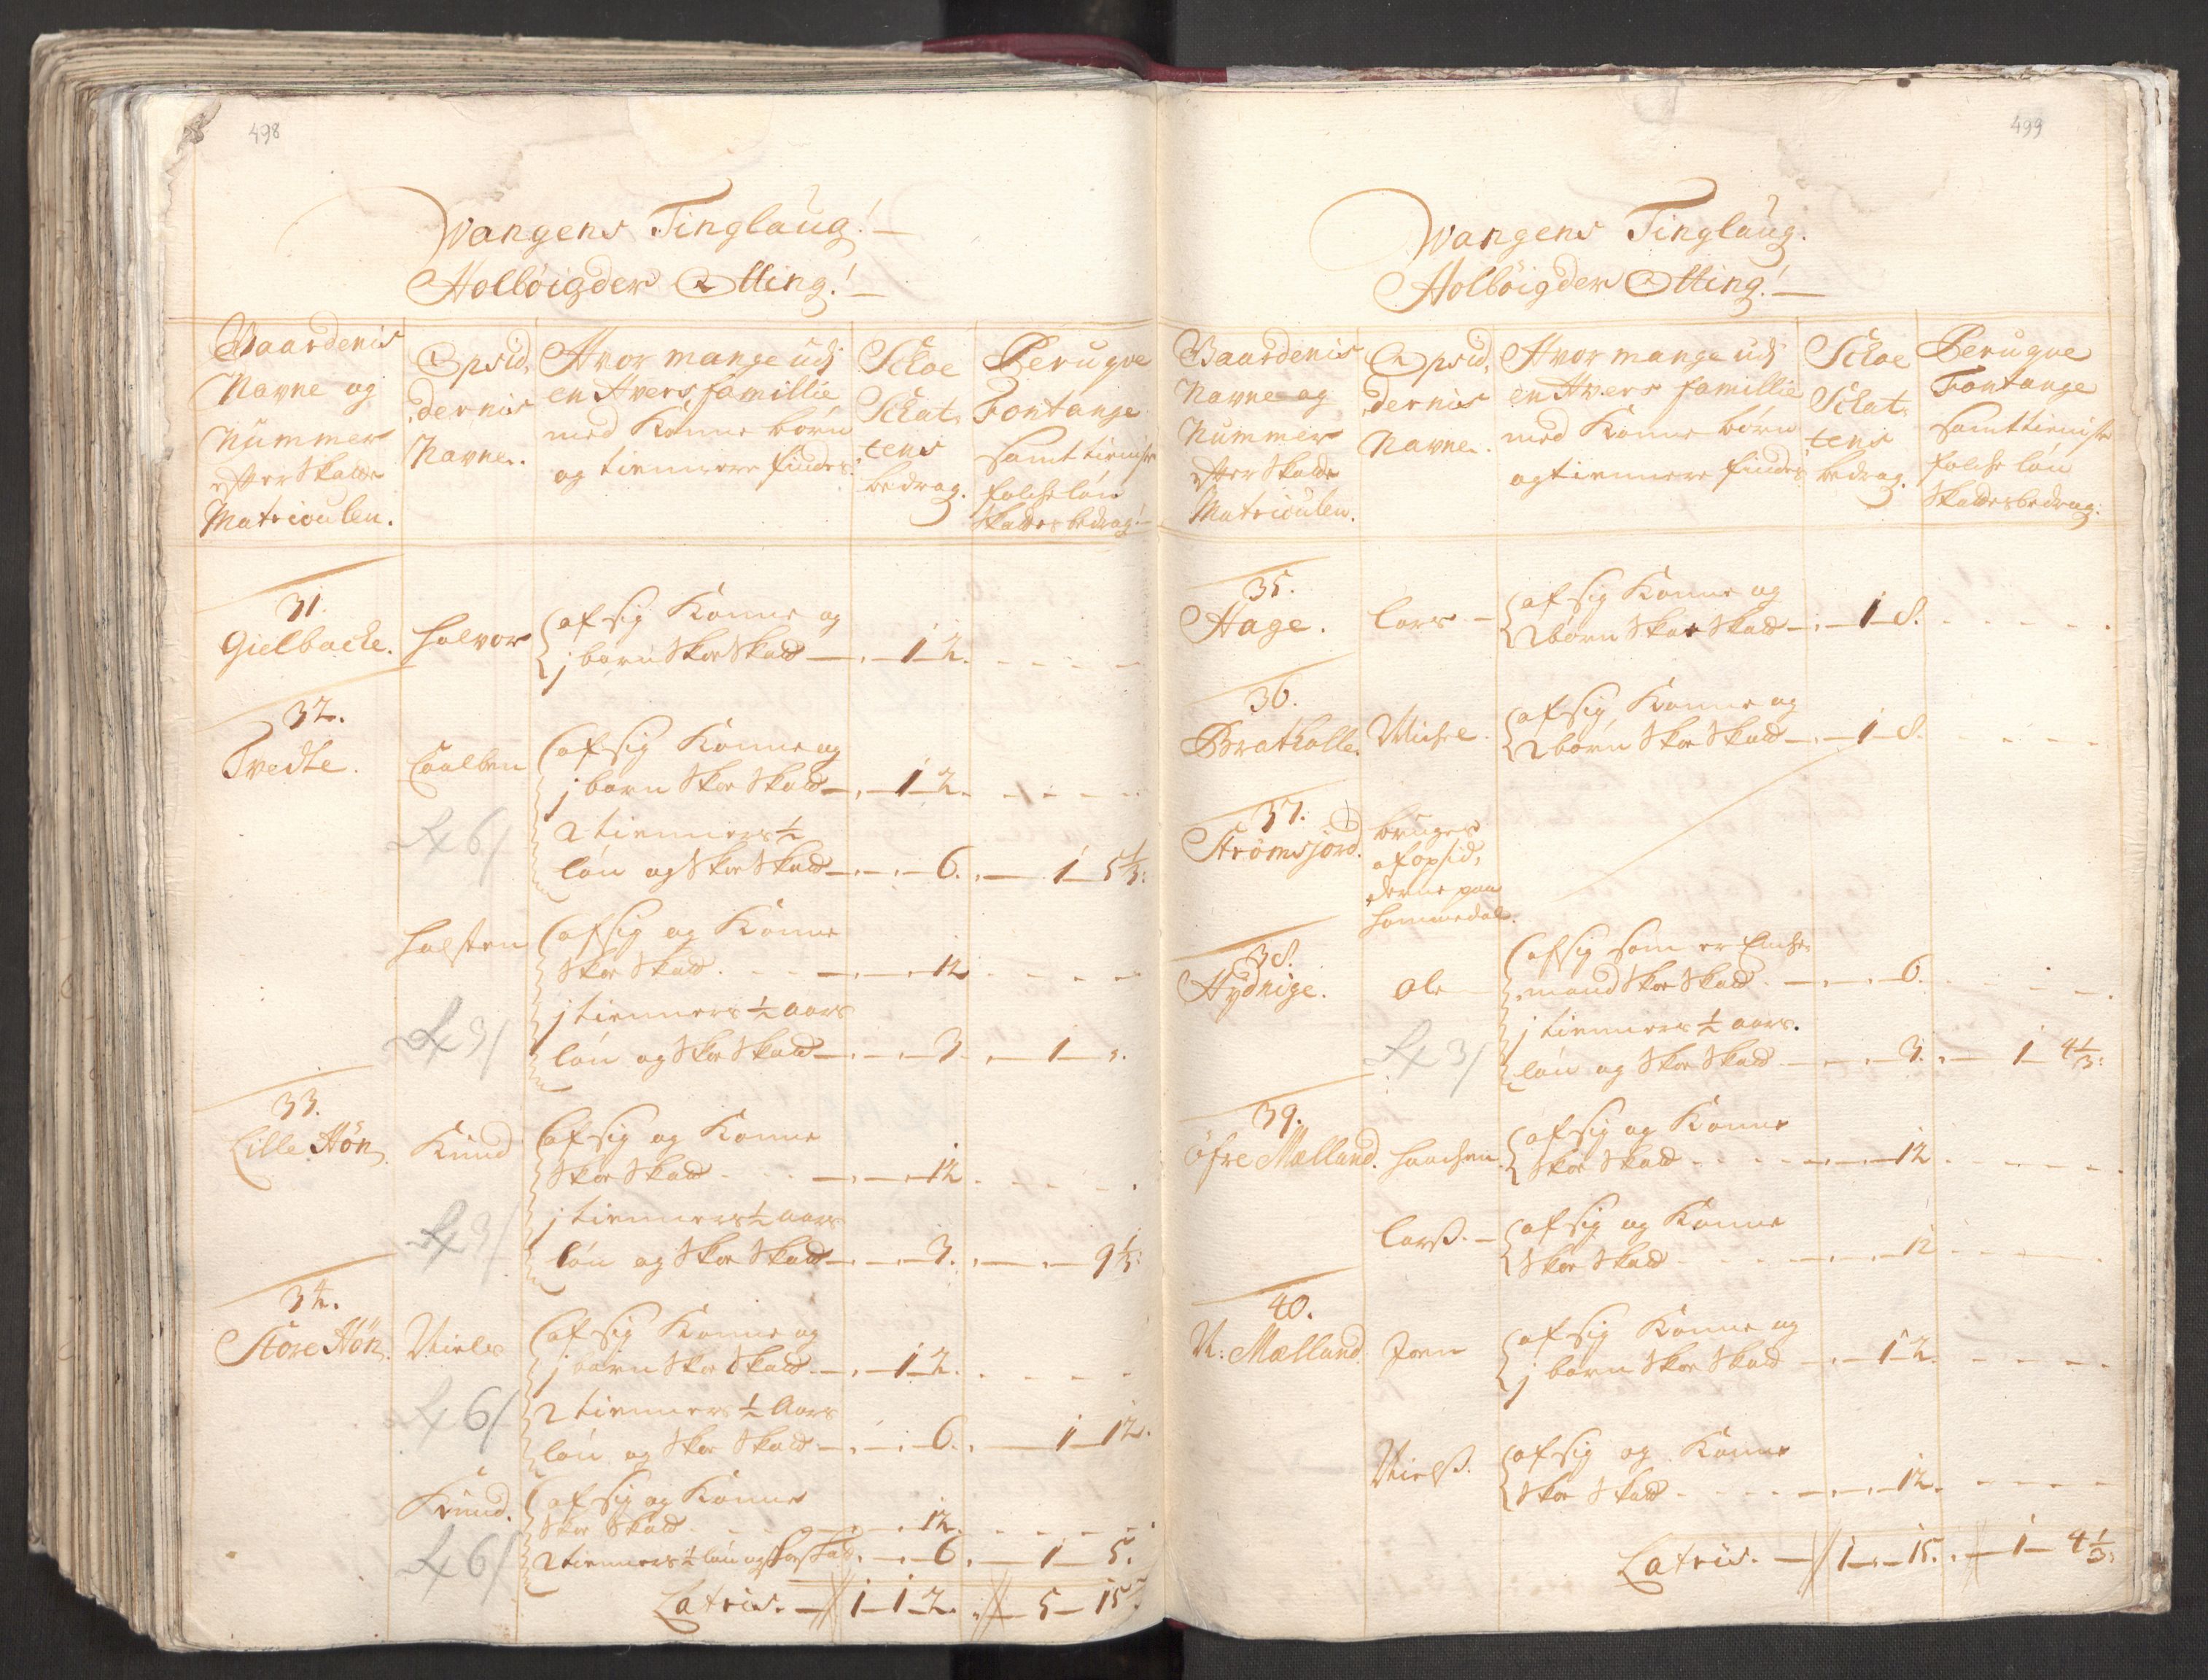 498
Wangens Tinglaug!
Holbøigder Otting!
Gaardenis
Navne og
Nummer
efter Skatte
Matriculen.
Opsid,
dernis
Navne.
Hvor mange udj
en hvers famillie
med Konne børn
og tiennere findes.
Schoe
Schat,
tens
bedrag.
Peruqve
Fontange
samt tieniste
folche løn
Skattes bedrag!
31.
Gielbache.
Halvor
af sig Konne og
j barn Skoe Skatt - 1 - 2.
32.
Tvedte.
Coalben
af sig Konne og
j barn Skoe Skatt - 1 - 2.
2 tienners ½
løn og Skoe Skatt - 6. - 1 - 5⅓:
6/
Halsten
af sig og Konne
Skoe Skatt - 12
j tienners ½ aars
løn og Skoe Skatt - 3 - 1 - ,.
3/
33.
Lille Høn.
Knud
af sig og Konne
Skoe Skatt - 12
j tienners ½ aars
løn og Skoe Skatt - 3. - 9⅓:
3/
34.
Store Høn.
Niels
af sig Konne og
j barn Skoe Skatt - 1 - 2.
2 tienners ½ Aars
løn og Skoe Skatt - 6. - 1 - 12.
6/
Knud.
af sig og Konne
Skoe Skatt - 12.
2 tienners ½ løn og Skoe Skatt - 6. - 1 - 5.
6/
Latris. - 1 - 1 - 2. - 5 - 15
499
Wangens Tinglaug.
Holbøigder Otting!
Gaardenis
Navne og
Nummer
efter Skatte
Matriculen.
Opsid,
dernis
Navne.
Hvor mange udj
en hvers famillie
med Konne børn
og tiennere findes
Schoe
Schat,
tens
bedrag.
Peruqve
Fontange
samt tieniste
folche løn
Skattes bedrag:
35.
Hage.
Lars
af sig Konne og
2 børn Skoe Skatt - 1 - 8.
36.
Bratholle.
Michel
af sig Konne og
2 børn Skoe Skatt - 1 - 8.
37.
Strømsjord.
bruges
af opsid,
derne paa
Hommedal.
38.
Hydnige.
Ole
af sig som er Enche,
mand Skoe Skatt - 6.
j tienners ½ aars.
løn og Skoe Skatt - 3. - 1 - 4⅓:
3/
39.
øfre Mælland.
Haachen
af sig og Konne
Skoe Skatt - 12
Larß.
af sig og Konne
Skoe Skatt - 12
40.
N. Mælland.
Joen
af sig Konne og
j barn Skoe Skatt - 1 - 2.
Nielß.
af sig og Konne
Skoe Skatt - 12.
Latris. - 1 - 15. - 1 - 4⅓: